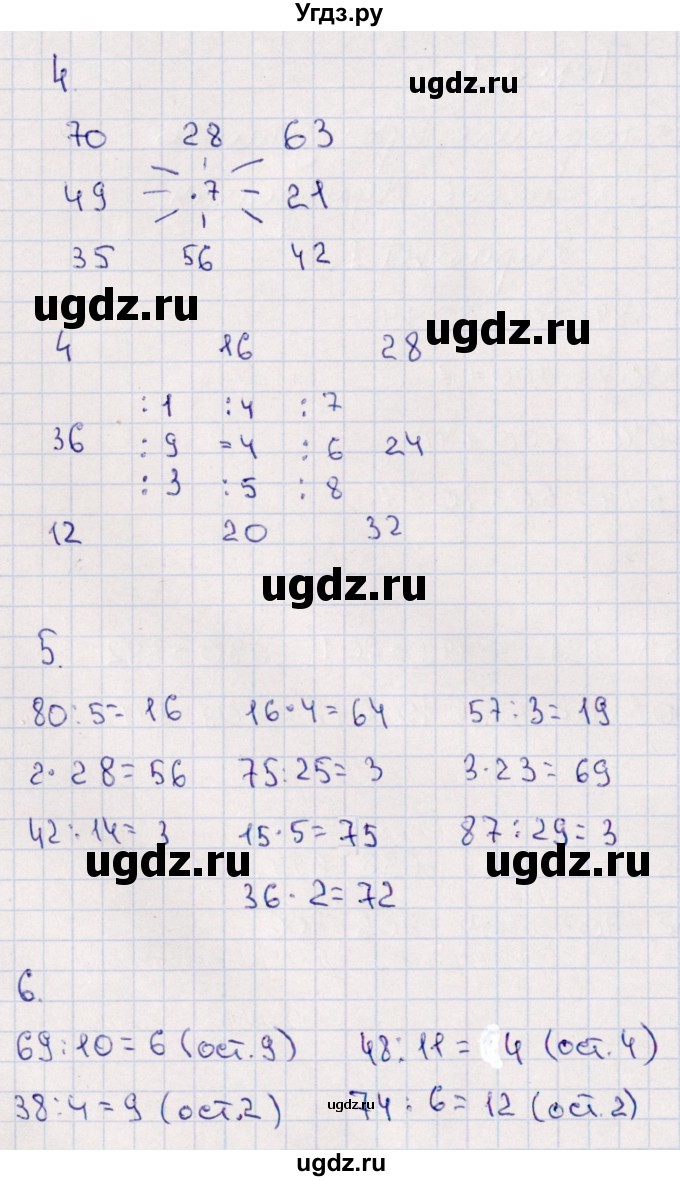 Угдз.ру
ugdz.ru
4.
70 28 63
49 .7 21
35 56 42
ugdz.ru
ugdz.ru
4 16 28
:1 :4 :7
36 :9 =4 :6 24
:3 :5 :8
12 20 32
ugdz.ru
5.
80:5=16 16·4=64 57:3=19
2·28=56 75:25=3 3·23=69
42:14=3 15·5=75 87:29=3
ugdz.ru ugdz.ru
36·2=72
6.
69:10=6 (ост.9) 48:11=4 (ост.4)
38:4=9 (ост.2) 74:6=12 (ост.2)
ugdz.ru
ugdz.ru